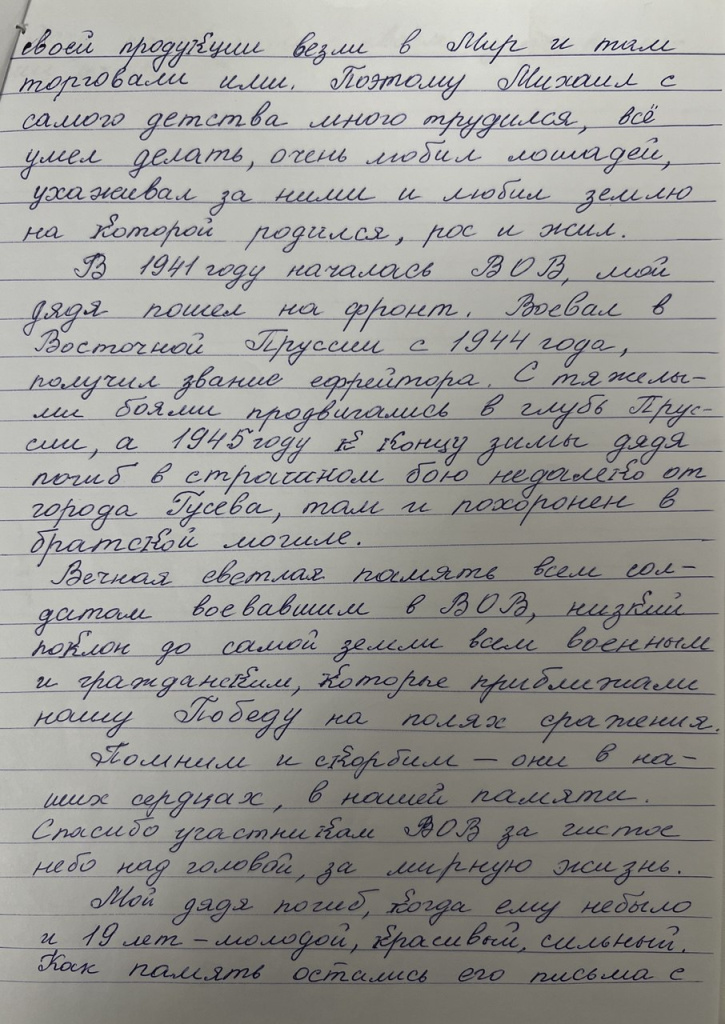 своей продукции везли в Мир и там
торговали ими. Поэтому Михаил с
самого детства много трудился, всё
умел делать, очень любил лошадей,
ухаживал за ними и любил землю
на которой родился, рос и жил.
В 1941 году началась ВОВ, мой
дядя пошел на фронт. Воевал в
Восточной Пруссии с 1944 года,
получил звание ефрейтора. С тяжелы-
ми боями продвигались в глубь Прус-
сии, а 1945 году к концу зимы дядя
погиб в страшном бою недалеко от
города Гусева, там и похоронен в
братской могиле.
Вечная светлая память всем сол-
датам воевавшим в ВОВ, низкий
поклон до самой земли всем военным
и гражданским, которые приближали
нашу Победу на полях сражения.
Помним и скорбим – они в на-
ших сердцах, в нашей памяти.
Спасибо участникам ВОВ за чистое
небо над головой, за мирную жизнь.
Мой дядя погиб, когда ему небыло
и 19 лет – молодой, красивый, сильный.
Как память остались его письма с